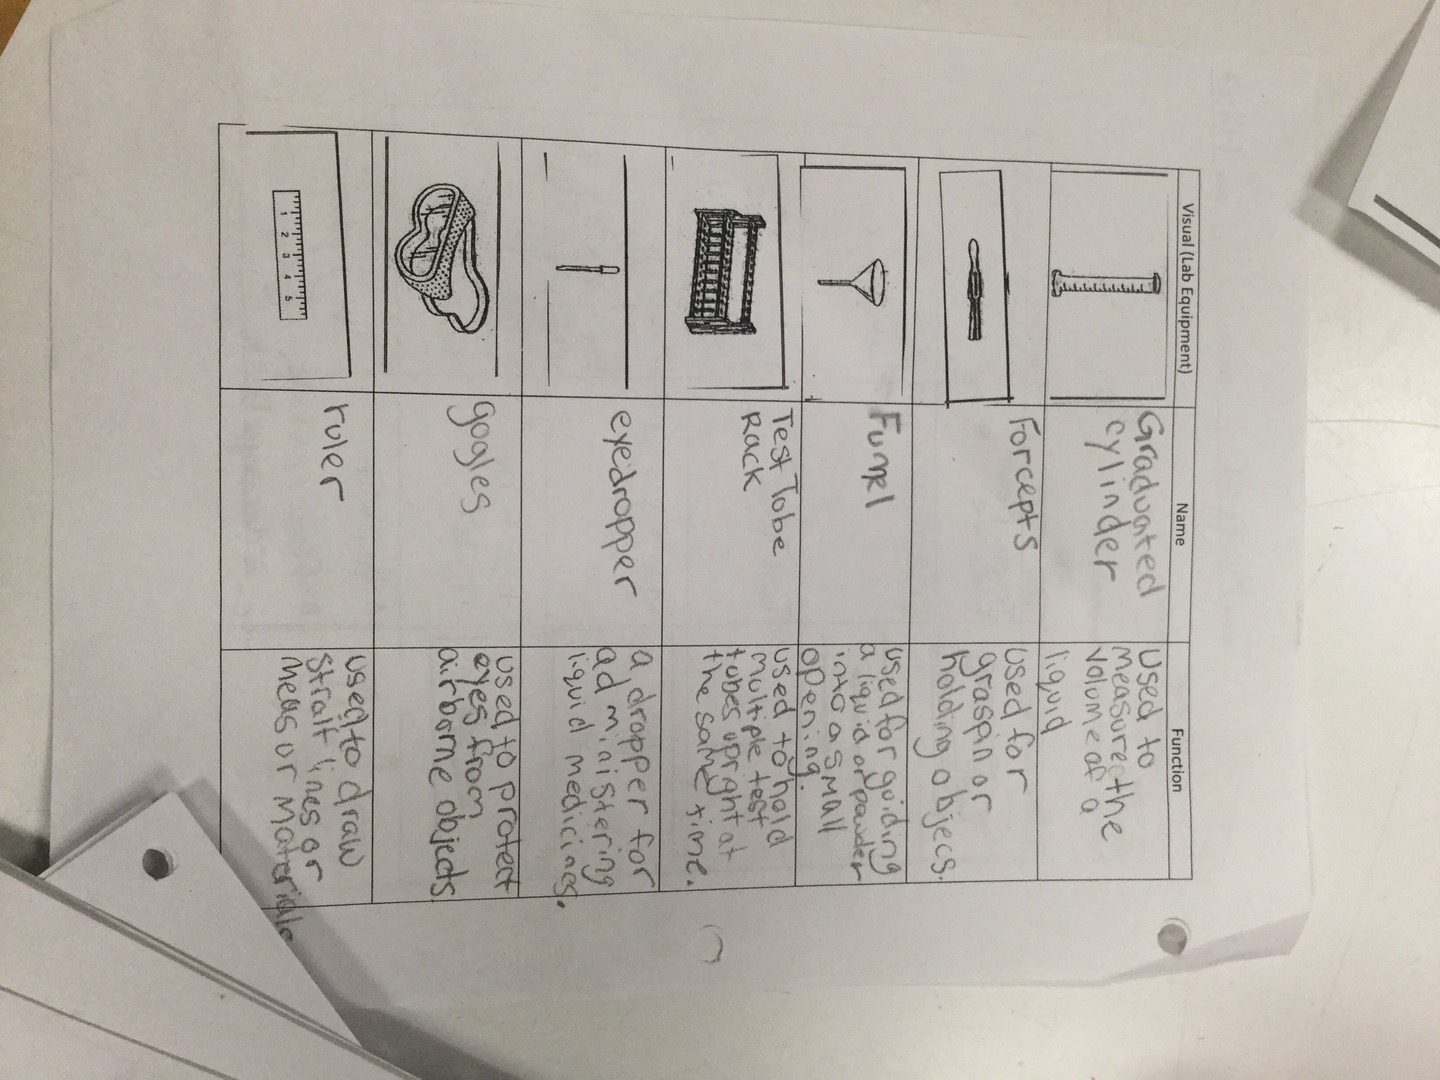 Visual (Lab Equipment) Name Function
Graduated
cylinder
used to
measure the
volume of a
liquid
Forcepts
used for
graspin or
holding objecs.
Funnel
used for guiding
a liquid or powder
into a small
opening.
Test Tobe
Rack
used to hold
multiple test
tubes upright at
the same time.
eyedropper
a dropper for
administering
liquid medicines.
goggles
used to protect
eyes from
airborne objects.
1 2 3 4 5
ruler
used to draw
strait lines or
measur materials